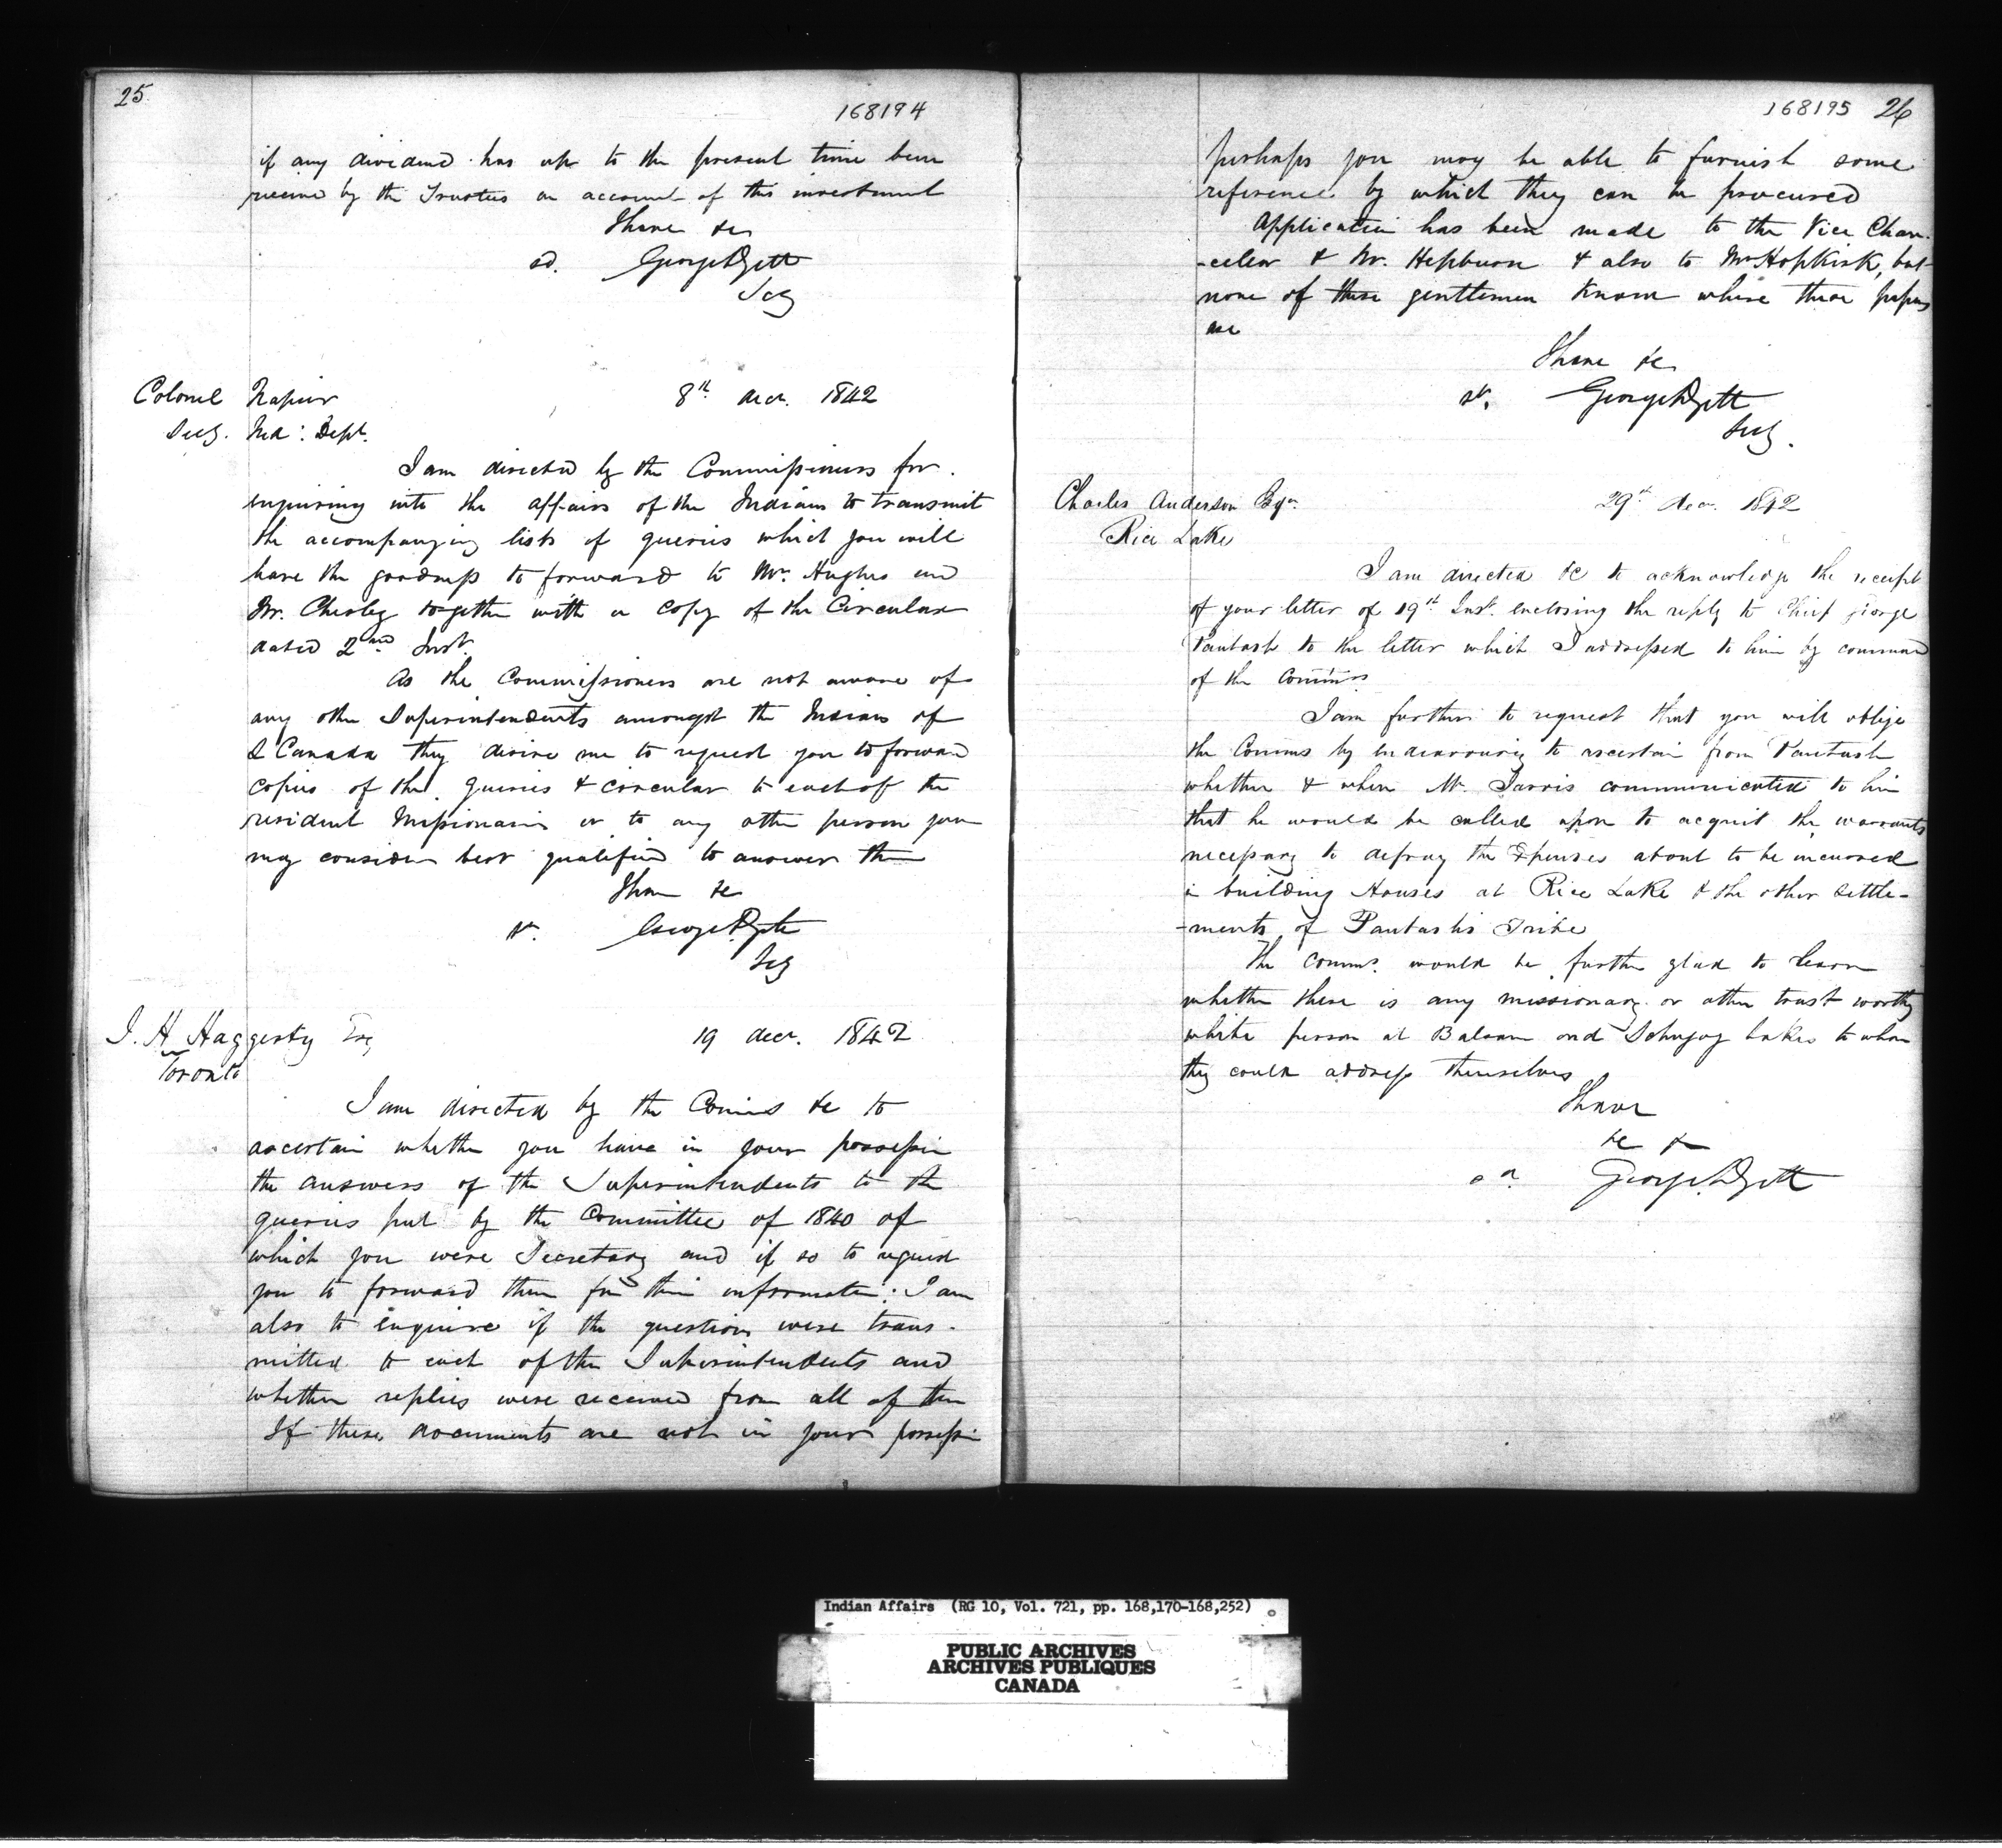 25
168194
if any dividend has up to the present time been
receivd by the Trustees on account of this investment
I have &c
sd. George Dyett
Secy
Colonel Napier 8th decr. 1842
Secy. Ind: Dept.
I am directed by the Commissioners for
enquiring into the affairs of the Indians to transmit
the accompanying lists of queries which you will
have the goodness to forward to Mr. Hughes and
Mr. Chesley together with a copy of the Circular
dated 2nd Inst.
As the Commissioners are not aware of
any other Superintendents amongst the Indians of
L Canada they desire me to request you to forward
copies of the queries & circular to each of the
resident Missionaries or to any other person you
may consider best qualified to answer them
I have &c
sd.
Secy
J. H Haggerty Esq 19 decr. 1842
Toronto
I am directed by the Comms &c to
ascertain whether you have in your possession
the answers of the Superintendents to the
queries put by the Committee of 1840 of
which you were Secretary and if so to request
you to forward them for their information: I am
also to enquire if the questions were trans-
mitted to each of the Superintendents and
whether replies were received from all of them
If these documents are not in your possession
168195 26
perhaps you may be able to furnish some
reference by which they can be procured
Application has been made to the Vice Chan-
-cellor & Mr. Hepburn & also to Mr Hopkirk, but
none of these gentlemen know where these papers
are
I have &c
sd. George Dyett
Secy.
Charles Anderson Esqr. 29th decr. 1842
Rice Lake
I am directed &c to acknowledge the receipt
of your letter of 19th Inst. enclosing the reply to Chief George
Pautash to the letter which I addressed to him by command
of the Commrs
I am further to request that you will oblige
the Comms by endeavouring to ascertain from Pautash
whether & when Mr. Jarvis communicated to him
that he would be called upon to acquit the warrants
necessary to defray the Expenses about to be incurred
in building Houses at Rice Lake & the other settle-
-ments of Pautash's Tribe
The Comms. would be further glad to learn
whether there is any missionary or other trust worthy
white person at Balsam and Schugog Lakes to whom
they could address themselves
I have
&c &
sd. George Dyett
Indian Affairs (RG 10, Vol. 721, pp. 168,170-168,252)
PUBLIC ARCHIVES
ARCHIVES PUBLIQUES
CANADA